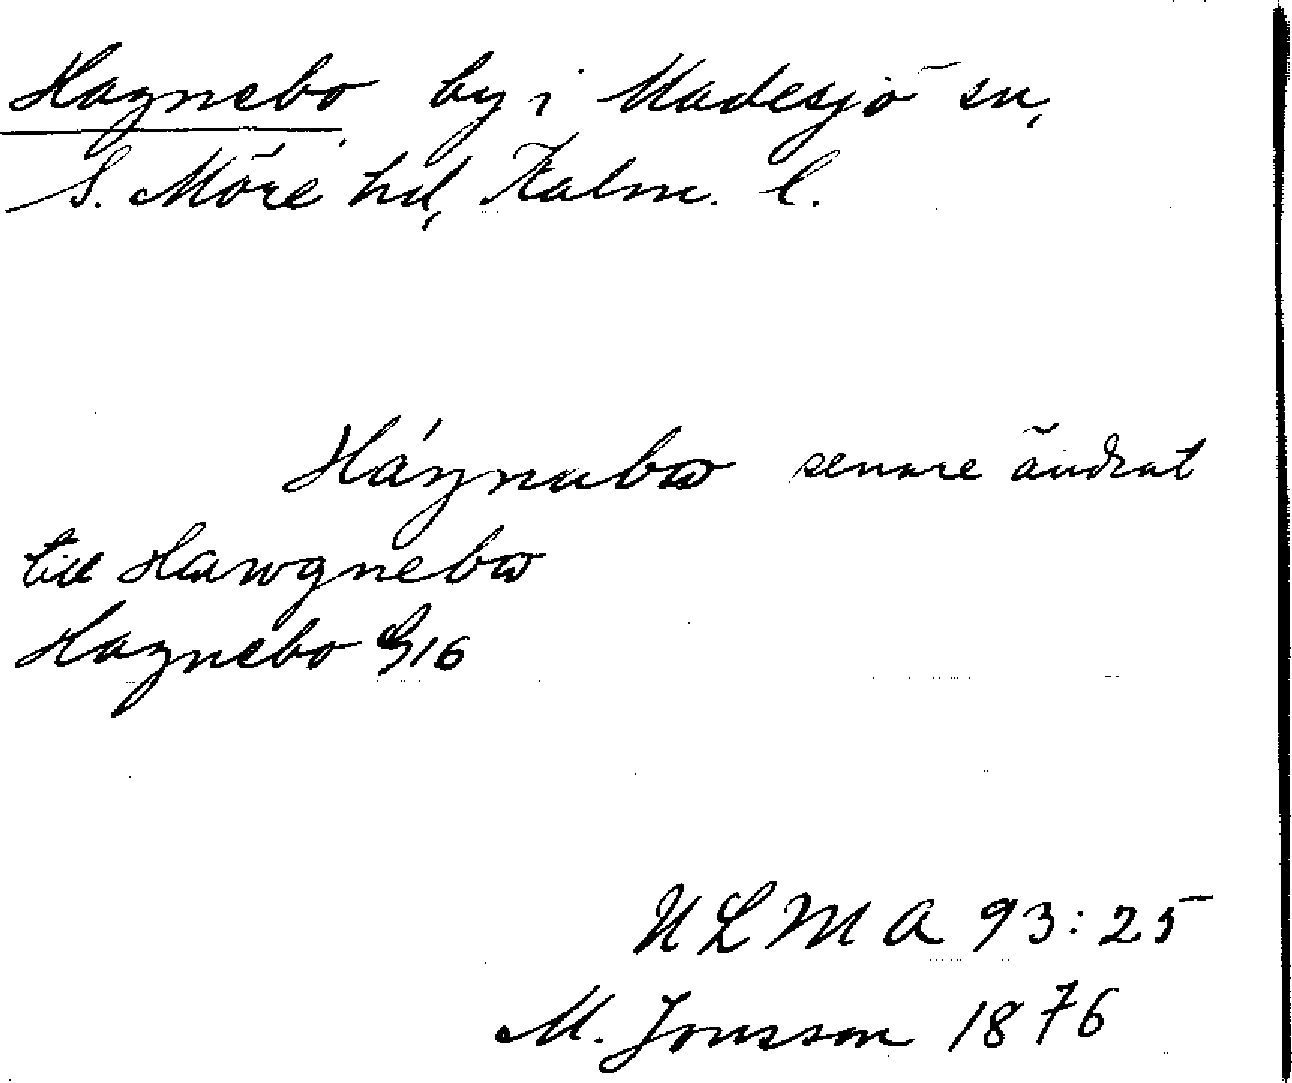 Hagnebo by i Madesjö sn,
S. Möre hd, Kalm. l.
Hágnabω senare ändrat
till Hawgnebω
Hagnebo G16
ULMA 93:25
M. Jonsson 1876